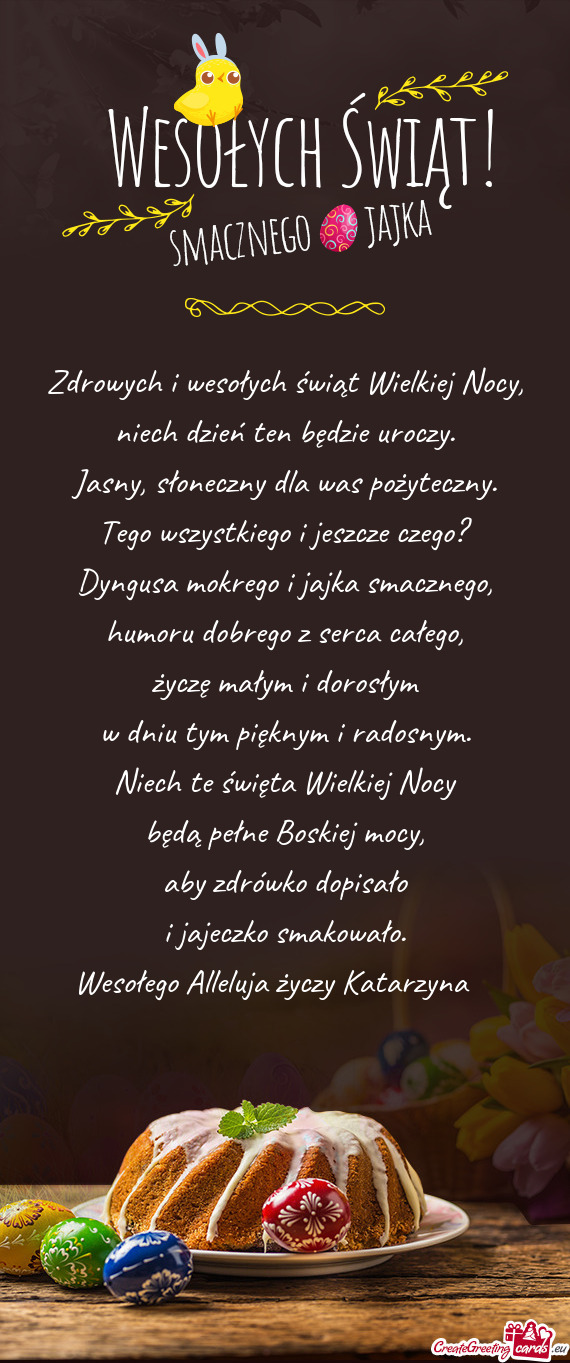 Wesołych Świąt!
smacznego jajka
Zdrowych i wesołych świąt Wielkiej Nocy,
niech dzień ten będzie uroczy.
Jasny, słoneczny dla was pożyteczny.
Tego wszystkiego i jeszcze czego?
Dyngusa mokrego i jajka smacznego,
humoru dobrego z serca całego,
życzę małym i dorosłym
w dniu tym pięknym i radosnym.
Niech te święta Wielkiej Nocy
będą pełne Boskiej mocy,
aby zdrówko dopisało
i jajeczko smakowało.
Wesołego Alleluja życzy Katarzyna
CreateGreetingcards.eu